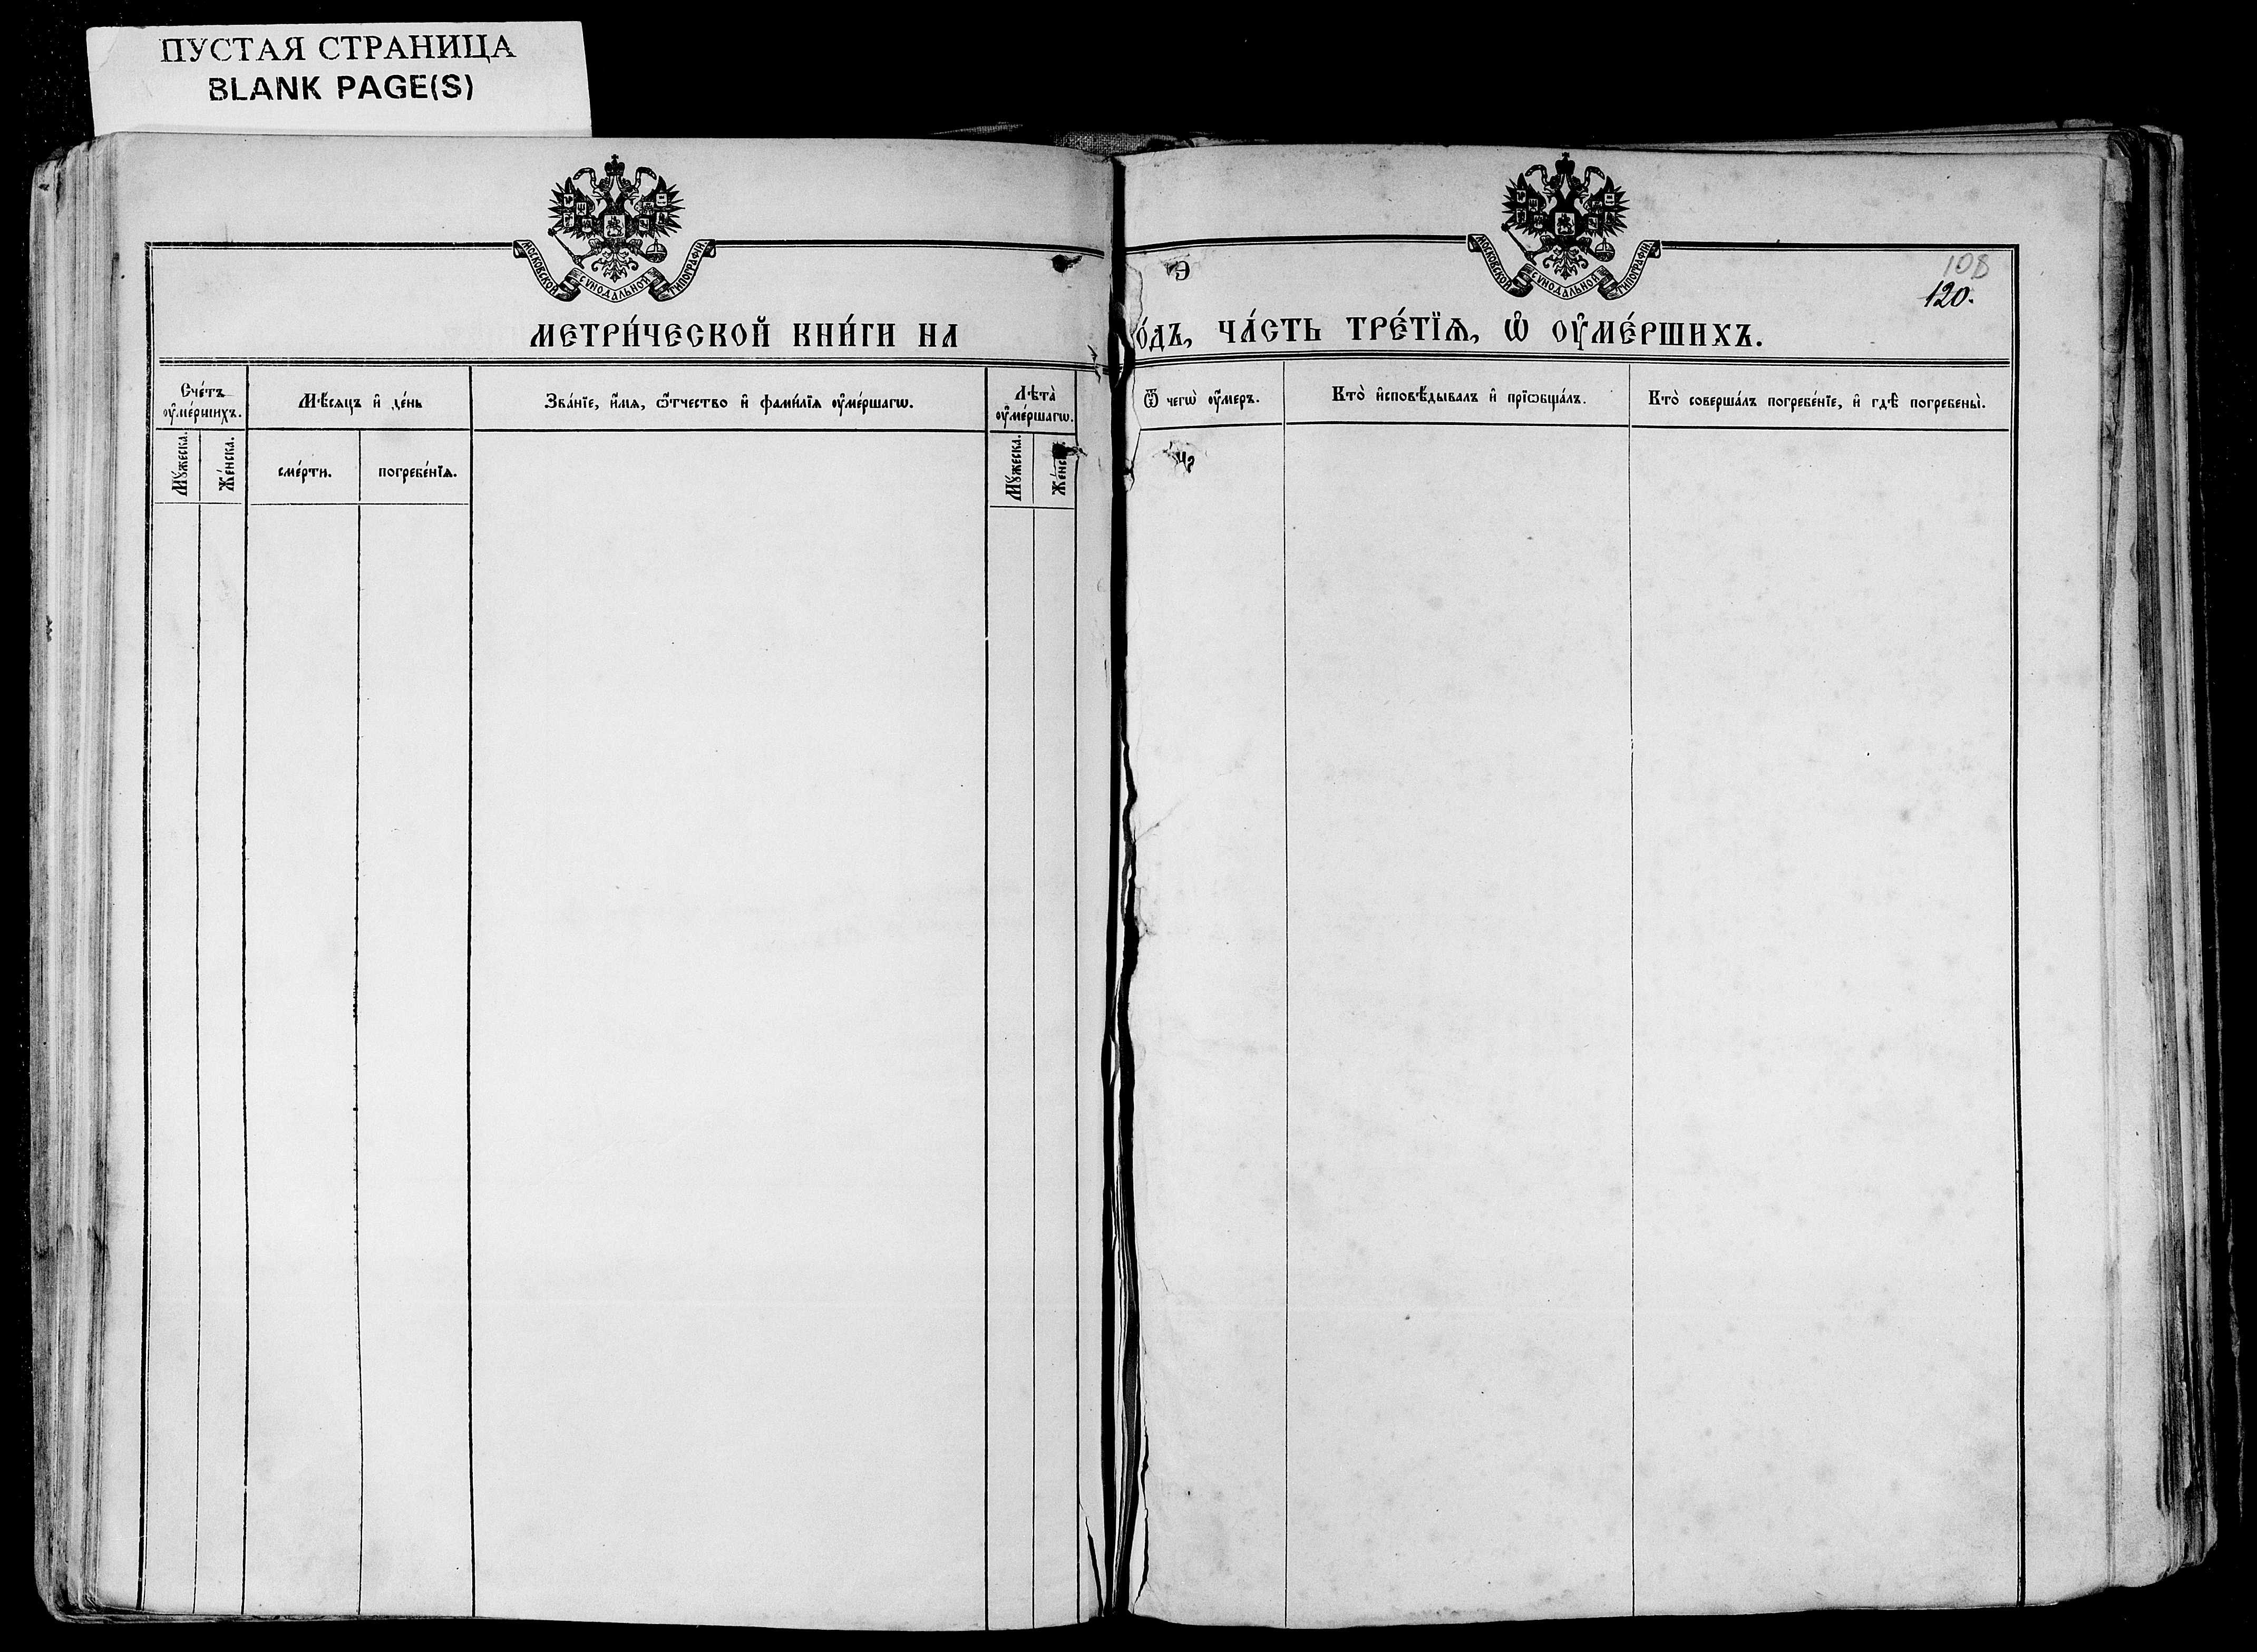 ПУСТАЯ СТРАНИЦА
BLANK PAGE(S)
МОСКОВСКОЙ СѴНОДАЛЬНОЙ ТИПОГРАФІИ
МОСКОВСКОЙ СѴНОДАЛЬНОЙ ТИПОГРАФІИ
108
120.
МЕТРИ́ЧЕСКОЙ КНИ́ГИ НА
О́ДЪ, ЧА́СТЬ ТРЕ́ТЇѦ, Ѡ҆ ОУ҆МЕ́РШИХЪ.
Сче́тъ оу҆ме́ршихъ.
Мѣ́сяцъ и҆ де́нь
Зва́нїе, и҆́мя, ѻ҆́тчество и҆ фами́лїя оу҆ме́ршагѡ.
Лѣта̀ оу҆ме́ршагѡ.
Ѿ чегѡ̀ оу҆́меръ.
Кто̀ и҆сповѣ́дывалъ и҆ прїѡбща́лъ.
Кто̀ соверша́лъ погребе́нїе, и҆ гдѣ̀ погребены̀.
Мꙋ́жеска.
Же́нска.
сме́рти.
погребе́нїѧ.
Мꙋ́жеска.